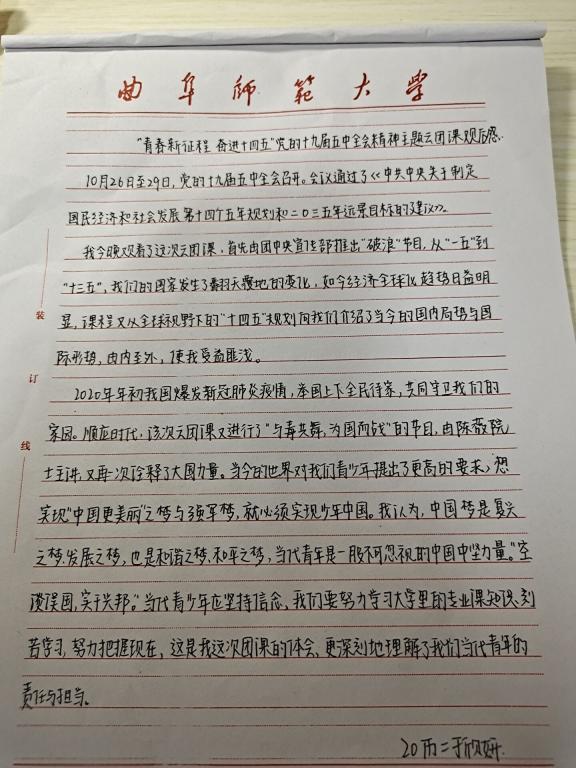 曲阜师范大学
“青春新征程 奋进十四五”党的十九届五中全会精神主题云团课观后感.
10月26日至29日,党的十九届五中全会召开。会议通过了《中共中央关于制定
国民经济和社会发展第十四个五年规划和二〇三五年远景目标的建议》。
我今晚观看了这次云团课,首先由团中央宣传部推出“破浪”节目,从“一五”到
“十三五”,我们的国家发生了翻天覆地的变化,如今经济全球化趋势日益明
显,课程又从全球视野下的“十四五”规划向我们介绍了当今的国内局势与国
际形势,由内至外,使我受益匪浅。
2020年年初我国爆发新冠肺炎疫情,举国上下全民待家,共同守卫我们的
家园。顺应时代,该次云团课又进行了“与毒共舞,为国而战”的节目,由陈薇院
士主讲,又再一次诠释了大国力量。当今的世界对我们青少年提出了更高的要求,想
实现“中国更美丽”之梦与强军梦,就必须实现少年中国。我认为,中国梦是复兴
之梦.发展之梦,也是和谐之梦.和平之梦,当代青年是一股不可忽视的中国中坚力量。“空
谈误国,实干兴邦。”当代青少年应坚持信念,我们要努力学习大学里的专业课知识,刻
苦学习,努力把握现在,这是我这次团课的体会,更深刻地理解了我们当代青年的
责任与担当。
装
订
线
20 二 欣妍.